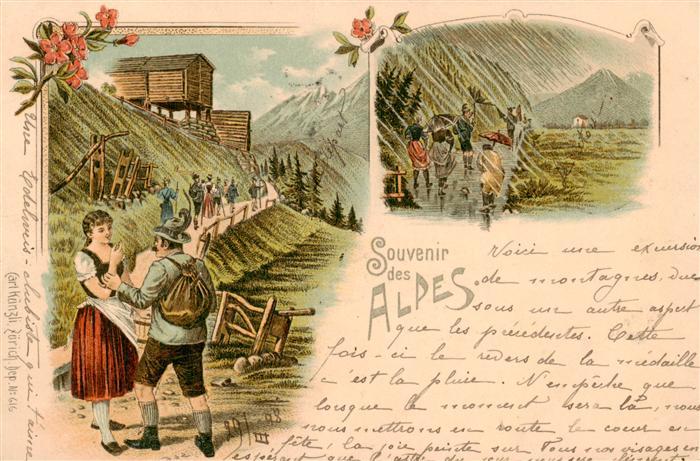 Souvenir
des
ALPES
Voici une excursion
de montagnes, vue
sous un autre aspect
que les précédentes. Cette
fois-ci le revers de la médaille
c'est la pluie. N'empêche que
lorsque le moment sera là, nous
nous mettrons en route le coeur en
fête, la joie peinte sur tous nos visages en
espérant que
Une Edelweis-clubiste qui t'aime
Carl Künzli, Zürich, Dep. No. 616